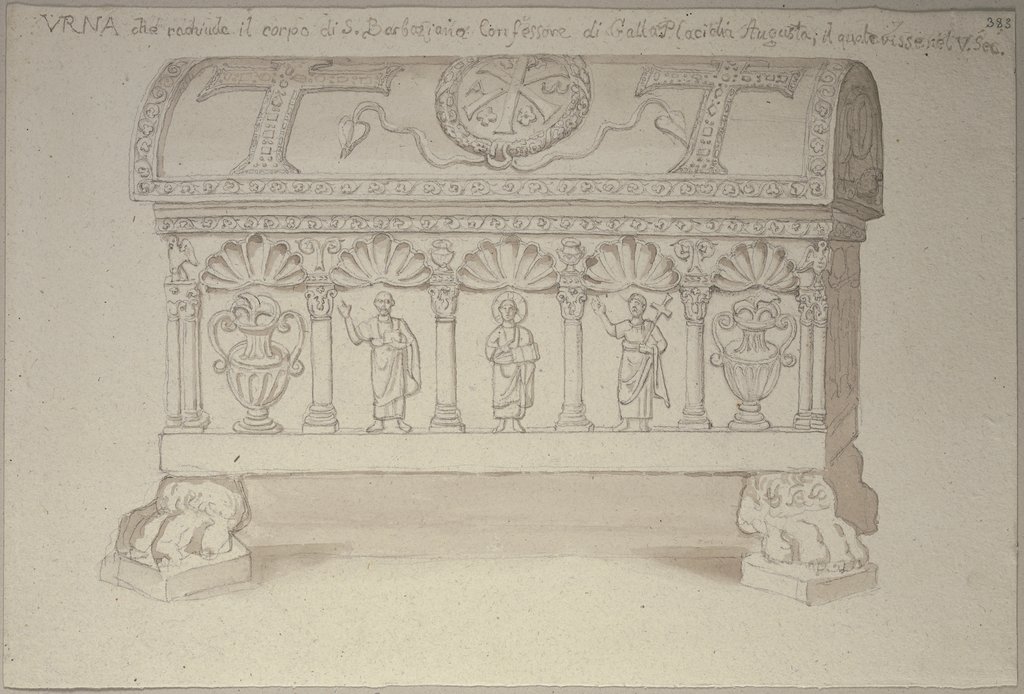 383
VRNA che rachiude il corpo di S. Barbaziano Confessore di Galla Placidia Augusta; il quale visse nel V. Sec.